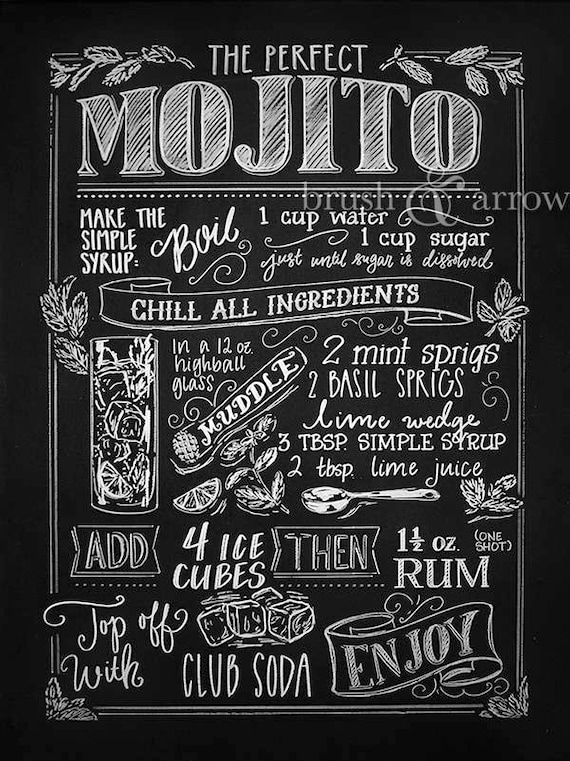 THE PERFECT
MOJITO
brush & arrow
MAKE THE
SIMPLE
SYRUP:
Boil
1 cup water
1 cup sugar
just until sugar is dissolved
CHILL ALL INGREDIENTS
in a 12 oz.
highball
glass
MUDDLE
2 mint sprigs
2 BASIL SPRIGS
lime wedge
3 TBSP. SIMPLE SYRUP
2 tbsp. lime juice
ADD
4 ICE
CUBES
THEN
1½ oz. (ONE SHOT)
RUM
Top off
With
CLUB SODA
ENJOY